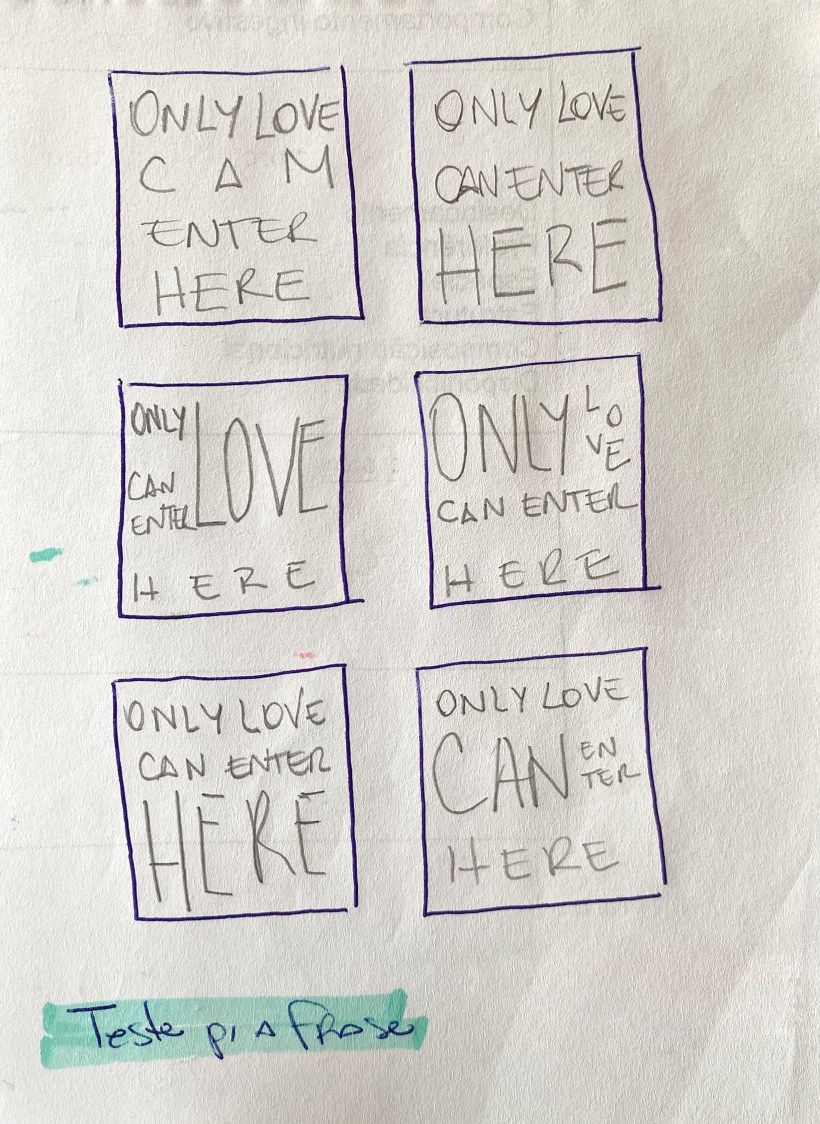 ONLY LOVE
CAM
ENTER
HERE
ONLY LOVE
CAN ENTER
HERE
ONLY LOVE
CAN
ENTER
HERE
ONLY LO
VE
CAN ENTER
HERE
ONLY LOVE
CAN ENTER
HERE
ONLY LOVE
CAN EN
TER
HERE
Teste p/ a frase